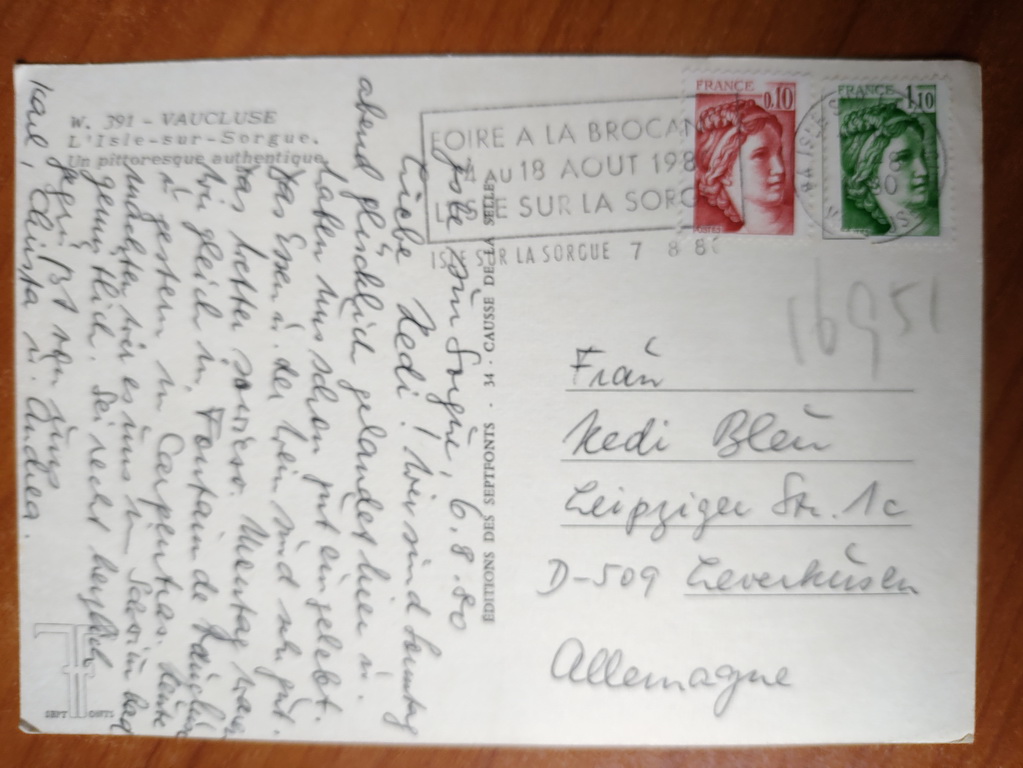 W. 391 - VAUCLUSE
L'Isle-sur-Sorgue.
Un pittoresque authentique
Sorgue, 6.8.80
Liebe Hedi! Wir sind Sonntag
abend glücklich gelandet hier u.
haben uns schon gut eingelebt.
Das Essen u. der Wein sind sehr gut.
Das Wetter sowieso. Montag waren
wir gleich in Fontain de Vaucluse
u. gestern in Carpentras. Heute
machten wir es uns im
gemütlich. Sei recht herzlich
gegrüßt von
Karl, Christa u. Andrea.
SEPT FONTS
EDITIONS DES SEPTFONTS . 34 . CAUSSE DE LA SELLE
FOIRE A LA BROCAN
AU 18 AOUT 198
L'ISLE SUR LA SORG
ISLE SUR LA SORGUE 7 8 80
FRANCE 0,10
POSTES
FRANCE 1,10
16951
Frau
Hedi Bleu
Leipziger Str. 1c
D-509 Leverkusen
Allemagne